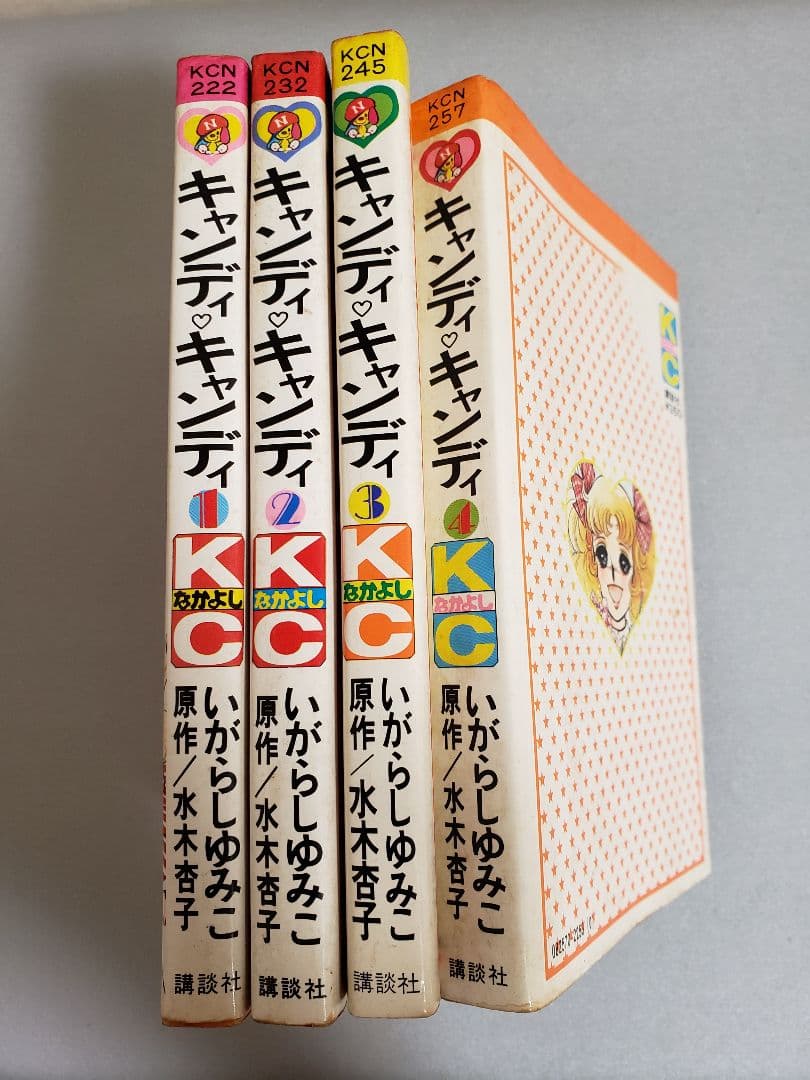 KCN
222
キャンディ♡キャンディ
1
K
なかよし
C
いがらしゆみこ
原作/水木杏子
講談社
KCN
232
キャンディ♡キャンディ
2
K
なかよし
C
いがらしゆみこ
原作/水木杏子
講談社
KCN
245
キャンディ♡キャンディ
3
K
なかよし
C
いがらしゆみこ
原作/水木杏子
講談社
KCN
257
キャンディ♡キャンディ
4
K
なかよし
C
いがらしゆみこ
原作/水木杏子
講談社
K
C